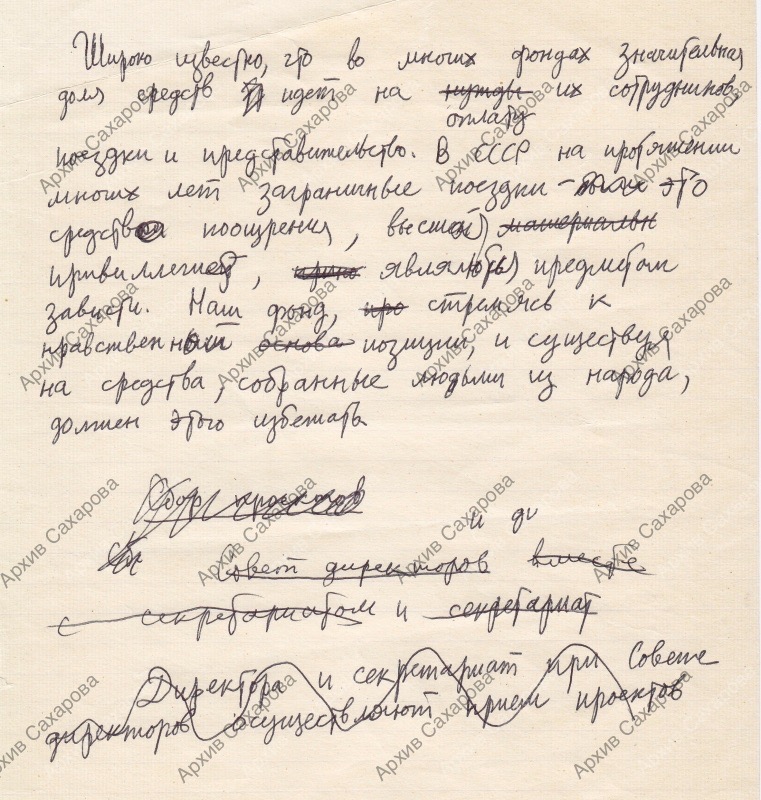 Широко известно, что во многих фондах значительная
доля средств идет на нужды их сотрудников,
оплату
поездки и представительство. В СССР на протяжении
многих лет заграничные поездки - это
средство поощрения, высшей) материальн
привиллегией, являлось) предметом
зависти. Наш фонд, про стремясь к
нравственной основа позиции, и существуя
на средства, собранные людьми из народа,
должен этого избежать
Сбор проектов
и ди
Совет директоров вместе
с секретариатом и секретариат
Директора и секретариат при Совете
директоров осуществляют прием проектов
Архив Сахарова